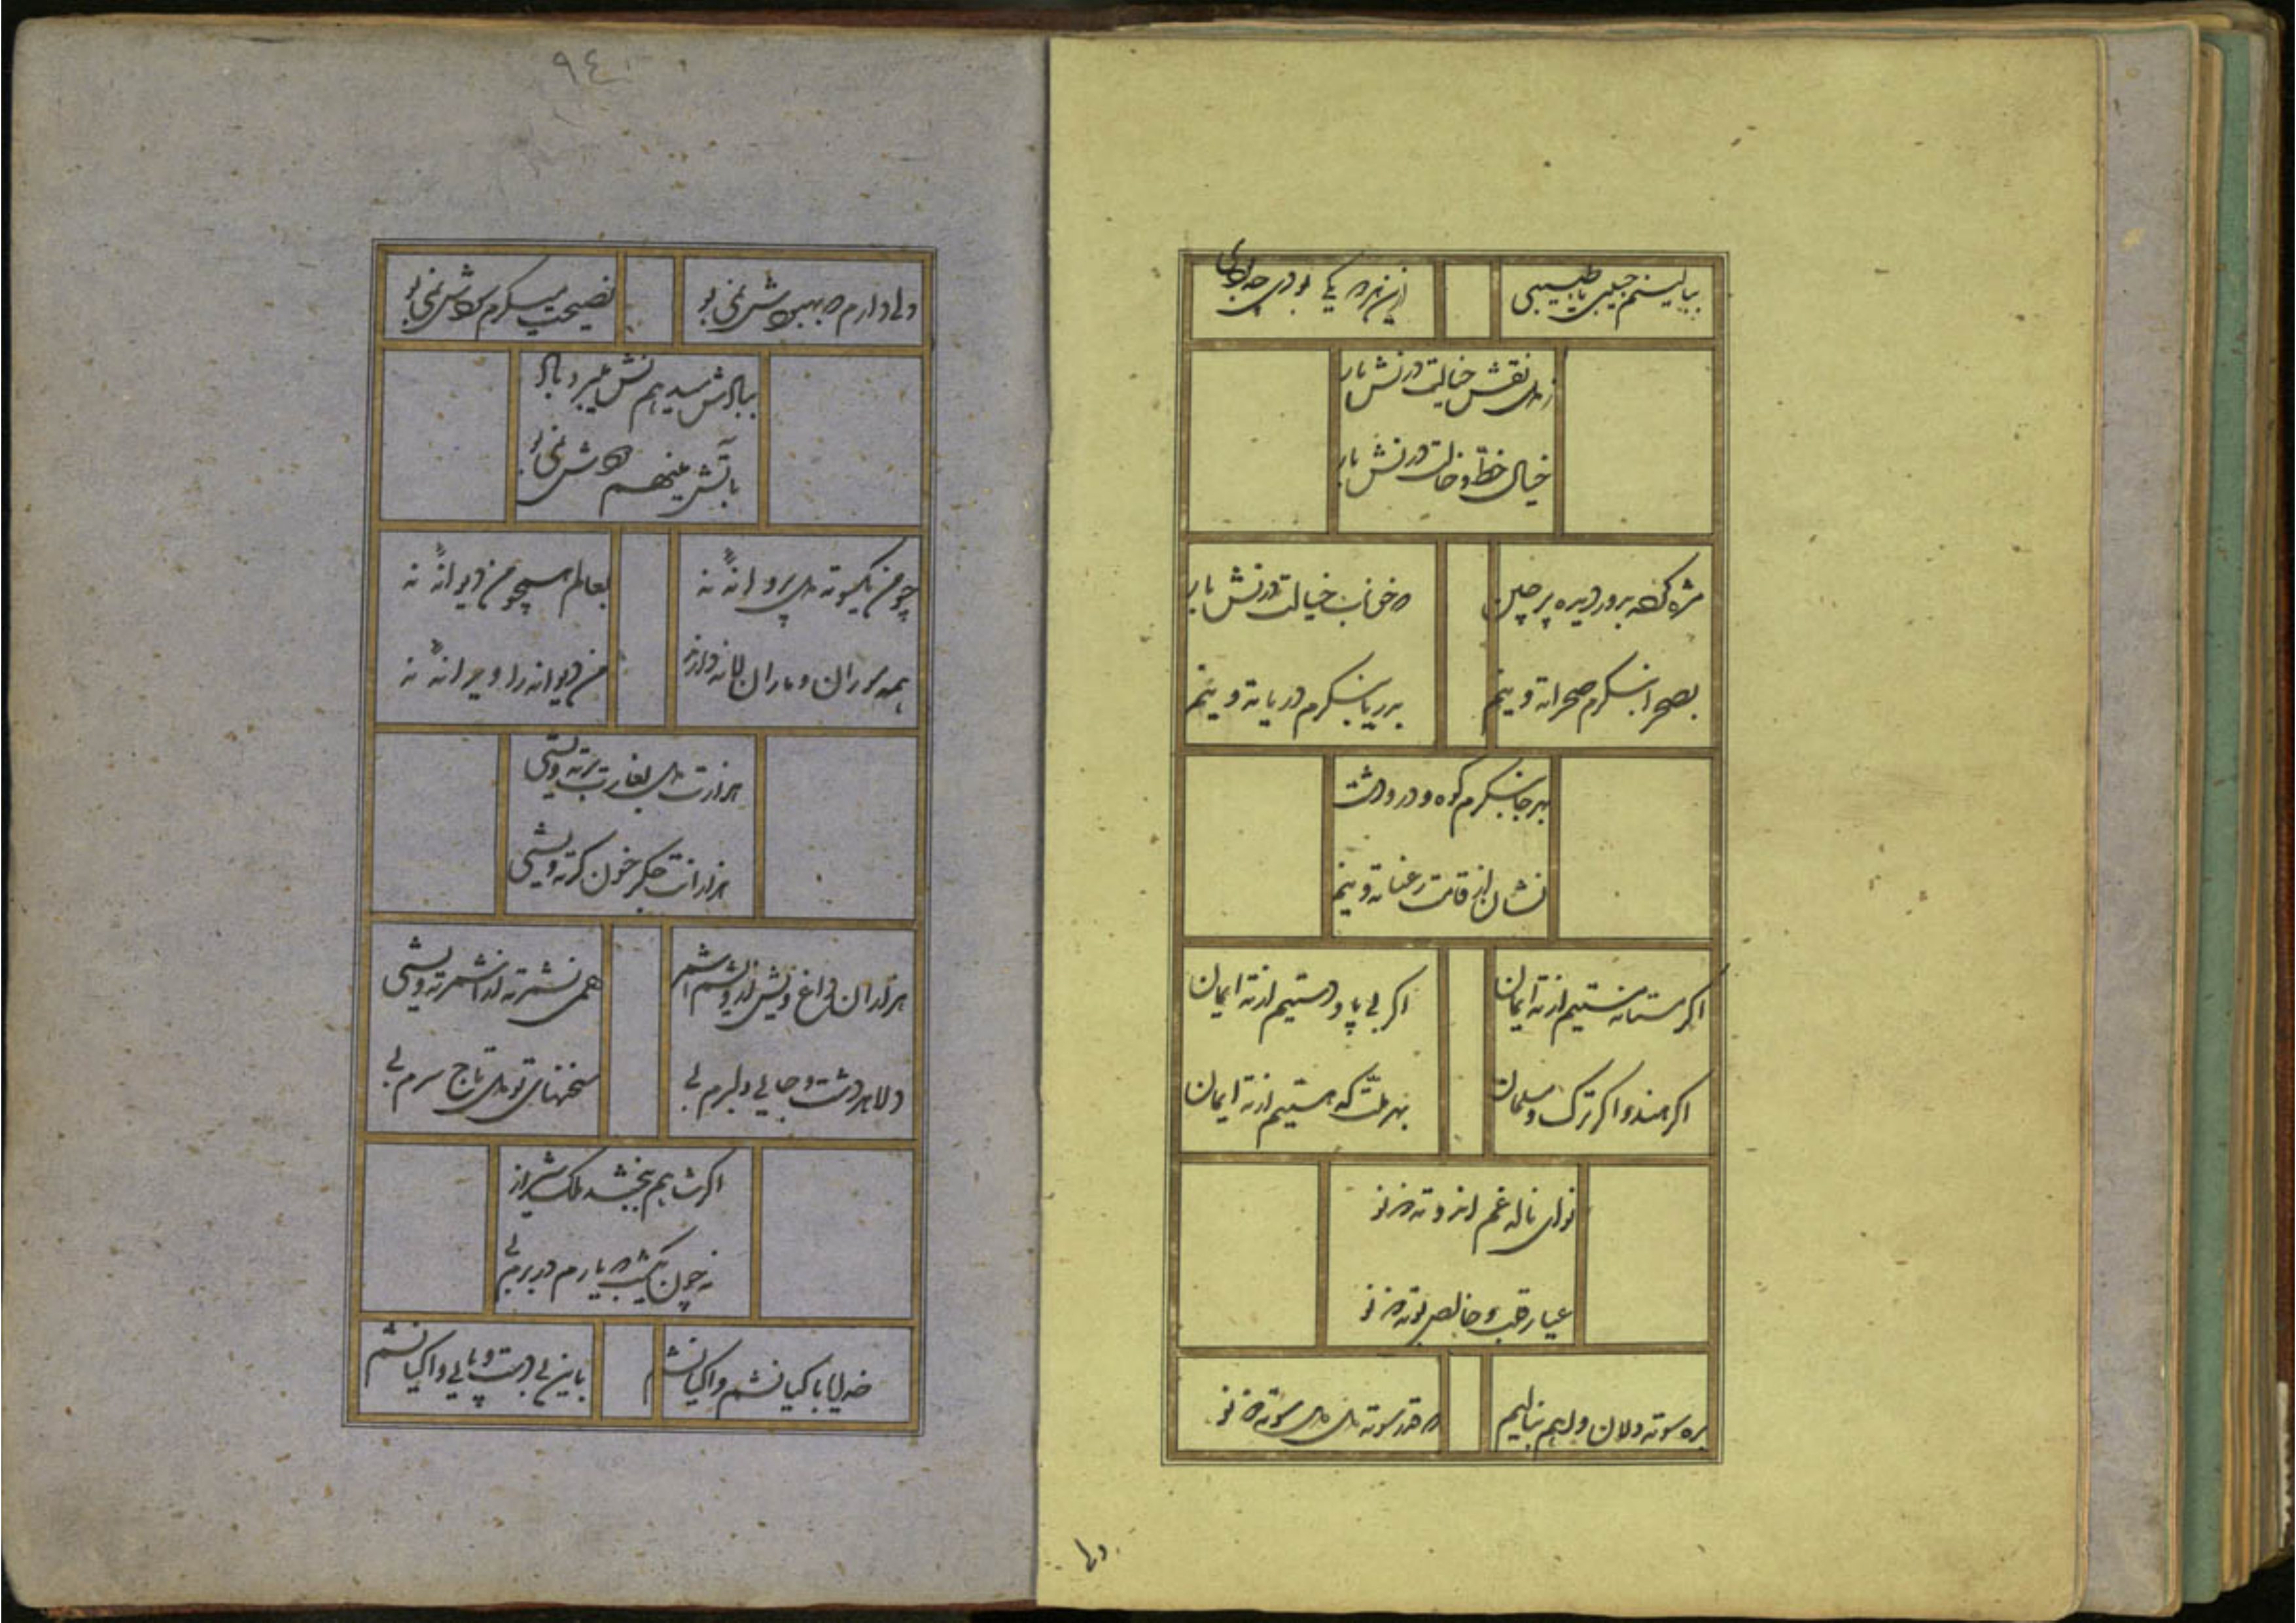 ببالینم حبیبی یا طبیبی
ازین هردو یکی بودی چه بودی
زدل نقش خیالت درنشی یار
خیال خط و خالت درنشی یار
مژه کردم بدور دیده پرچین
که خوناب خیالت درنشی یار
بصحرا بنگرم صحرا ته وینم
بدریا بنگرم دریا ته وینم
بهر جا بنگرم کوه و در و دشت
نشان از قامت رعنا ته وینم
اگر مستان مستیم از ته ایمان
اگر بی پا و دستیم از ته ایمان
اگر هندو اگر ترک و مسلمان
بهر ملت که هستیم از ته ایمان
نوای ناله غم اندوته ذونو
عیار قلب و خالص بوته ذونو
بره سوته دلان واهم بنالیم
که قدر سوته دل دل سوته ذونو
دلی
٩٤
دلی دارم که بهبودش نمی بو
نصیحت میکرم سودش نمی بو
ببادش میدهم نش میبرد باد
بآتش مینهم دودش نمی بو
چو من یک سوته دل پروانهٔ نه
بعالم همچو من دیوانهٔ نه
همه موران و ماران لانه دارند
من دیوانه را ویرانهٔ نه
هزارت دل بغارت برته ویشی
هزارانت جگر خون کرته ویشی
هزاران داغ ویش از ویشم اشمر
همی نشمرته از اشمرته ویشی
دلا هر دشت و جایی دلبرم بی
سخنهای تو دل تاج سرم بی
اگر شاهم ببخشد ملک شیراز
نه چون یکشب که یارم در برم بی
خدایا با کیانشم وا کیانشم
باین بی دست و پایی وا کیانشم